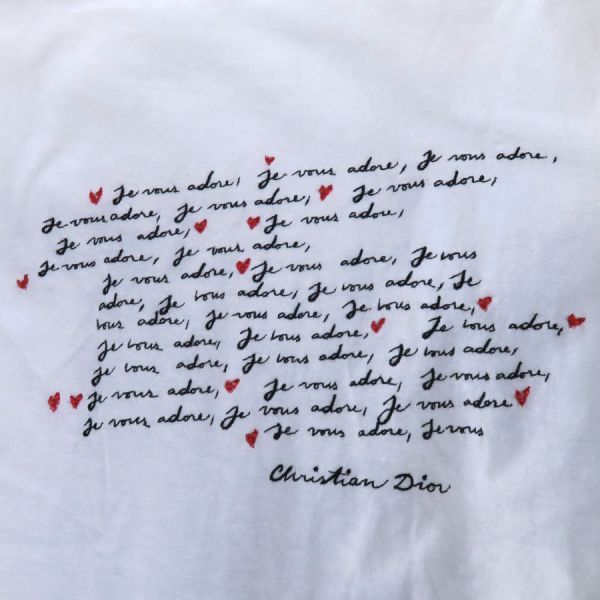 Je vous adore, Je vous adore, Je vous adore,
Je vous adore, Je vous adore, Je vous adore,
Je vous adore, Je vous adore,
Je vous adore, Je vous adore,
Je vous adore, Je vous adore, Je vous
adore, Je vous adore, Je vous adore, Je
vous adore, Je vous adore, Je vous adore,
Je vous adore, Je vous adore, Je vous adore,
Je vous adore, Je vous adore, Je vous adore,
Je vous adore, Je vous adore, Je vous adore,
Je vous adore, Je vous adore, Je vous adore
Je vous adore, Je vous
Christian Dior